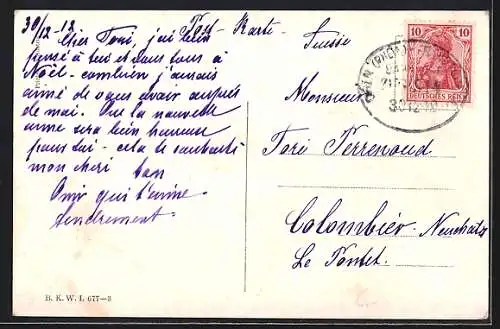 30/12-12
Post - Karte -
Suisse
Cher Tori, j'ai bien
pensé à toi et vous tous à
Noël - combien j'aurais
aimé de vous avoir auprès
de moi. Que la nouvelle
année sera bien heureuse
pour toi - cela te souhaite
mon chéri ton
Ami qui t'aime
tendrement.
Monsieur
Tori Perrenoud
Colombier - Neuchâtel
Le Pontet.
10 10
DEUTSCHES REICH
30 12 12
B. K. W. I. 677-3